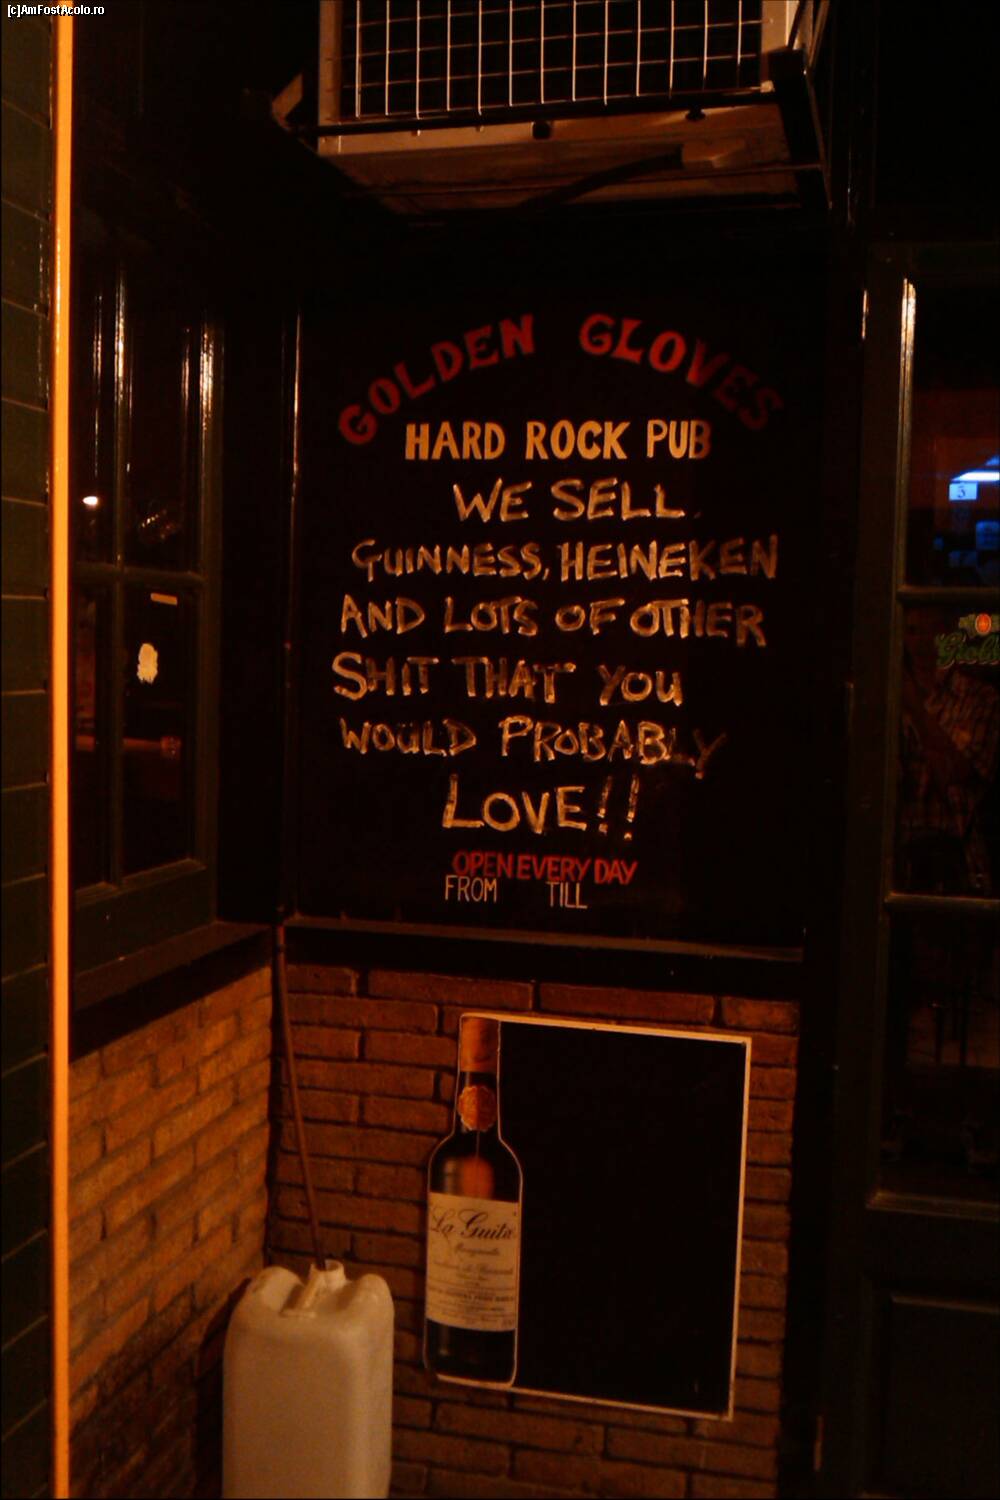 [c]AmFostAcolo.ro
GOLDEN GLOVES
HARD ROCK PUB
WE SELL
GUINNESS, HEINEKEN
AND LOTS OF OTHER
SHIT THAT YOU
WOULD PROBABLY
LOVE!!
OPEN EVERY DAY
FROM TILL
3
La Guita